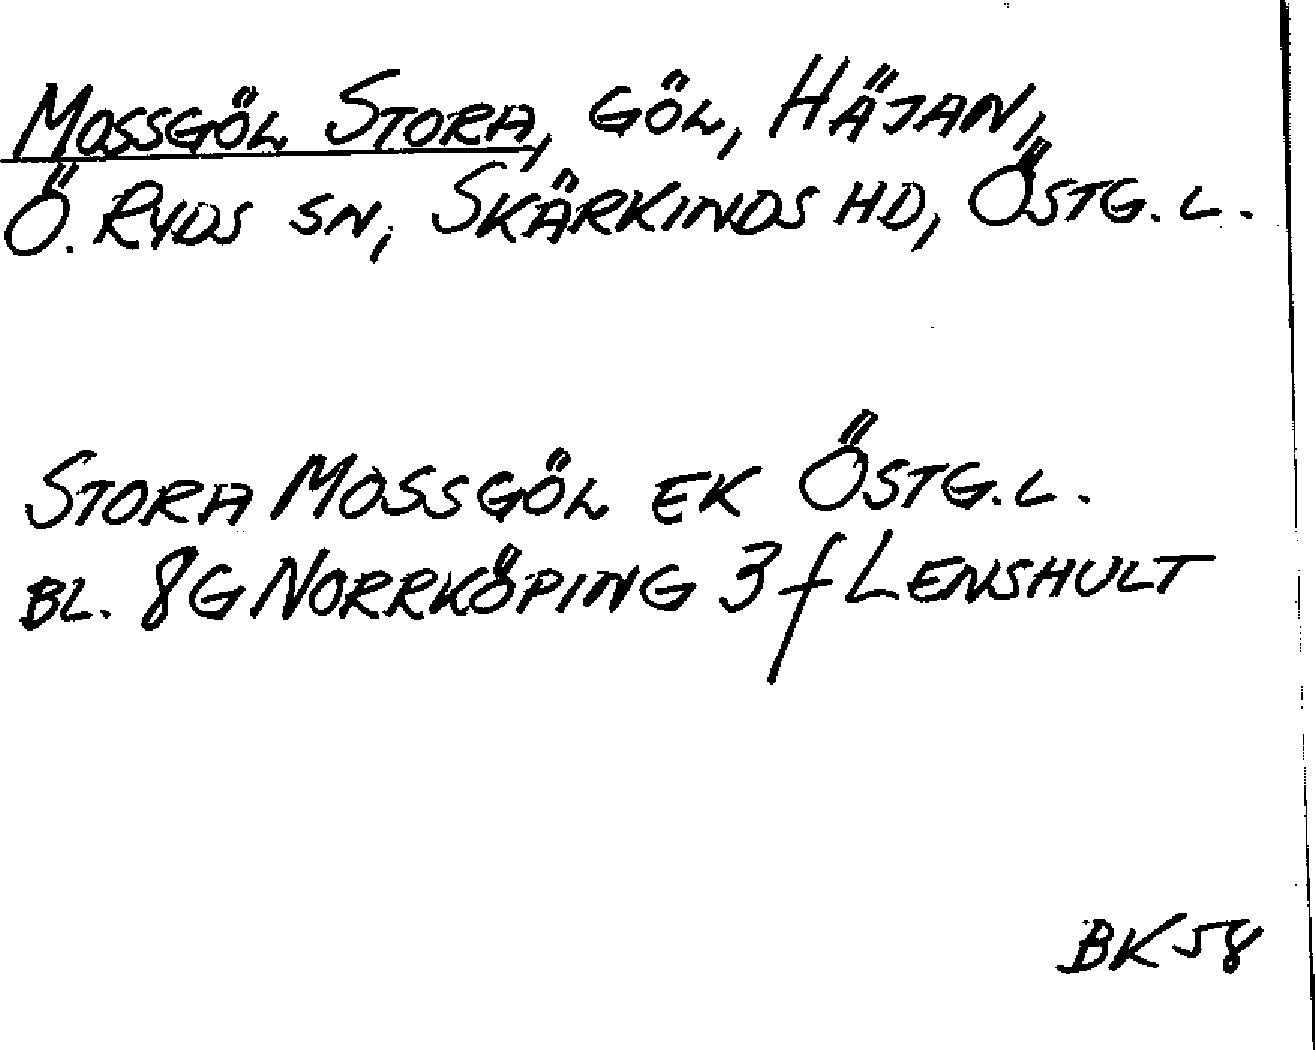 MOSSGÖL STORA, GÖL, HÄJAN,
Ö. RYDS SN, SKÄRKINDS HD, ÖSTG. L.
STORA MOSSGÖL EK ÖSTG. L.
BL. 8G NORRKÖPING 3f LENSHULT
BK 58